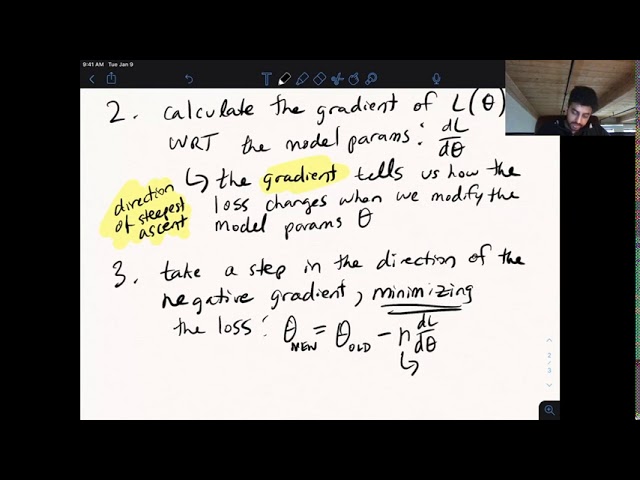 9:41 AM Tue Jan 9
2. calculate the gradient of L(θ)
WRT the model params: dL/dθ
↳ the gradient tells us how the
loss changes when we modify the
model params θ
direction
of steepest
ascent
3. take a step in the direction of the
negative gradient, minimizing
the loss: θNEW = θOLD - n dL/dθ
2/3